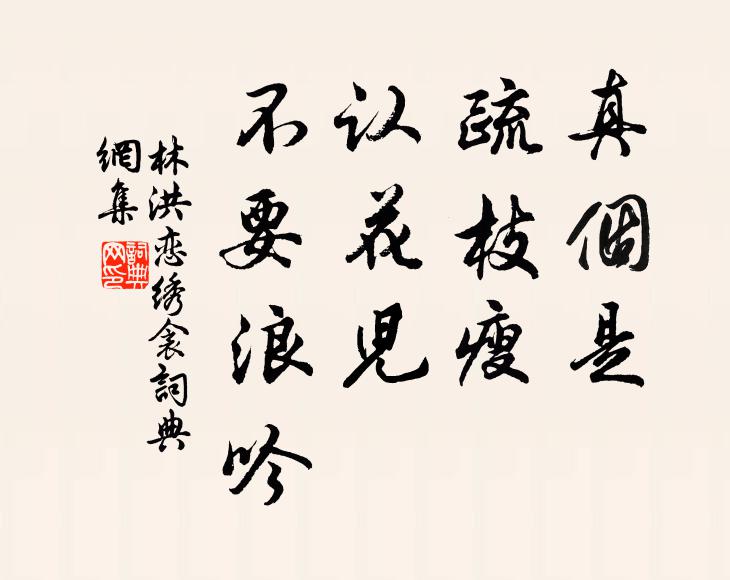 真個是
疏枝瘦
认花児
不要浪吟
林洪恋绣衾詞典
網集
詞典
网印